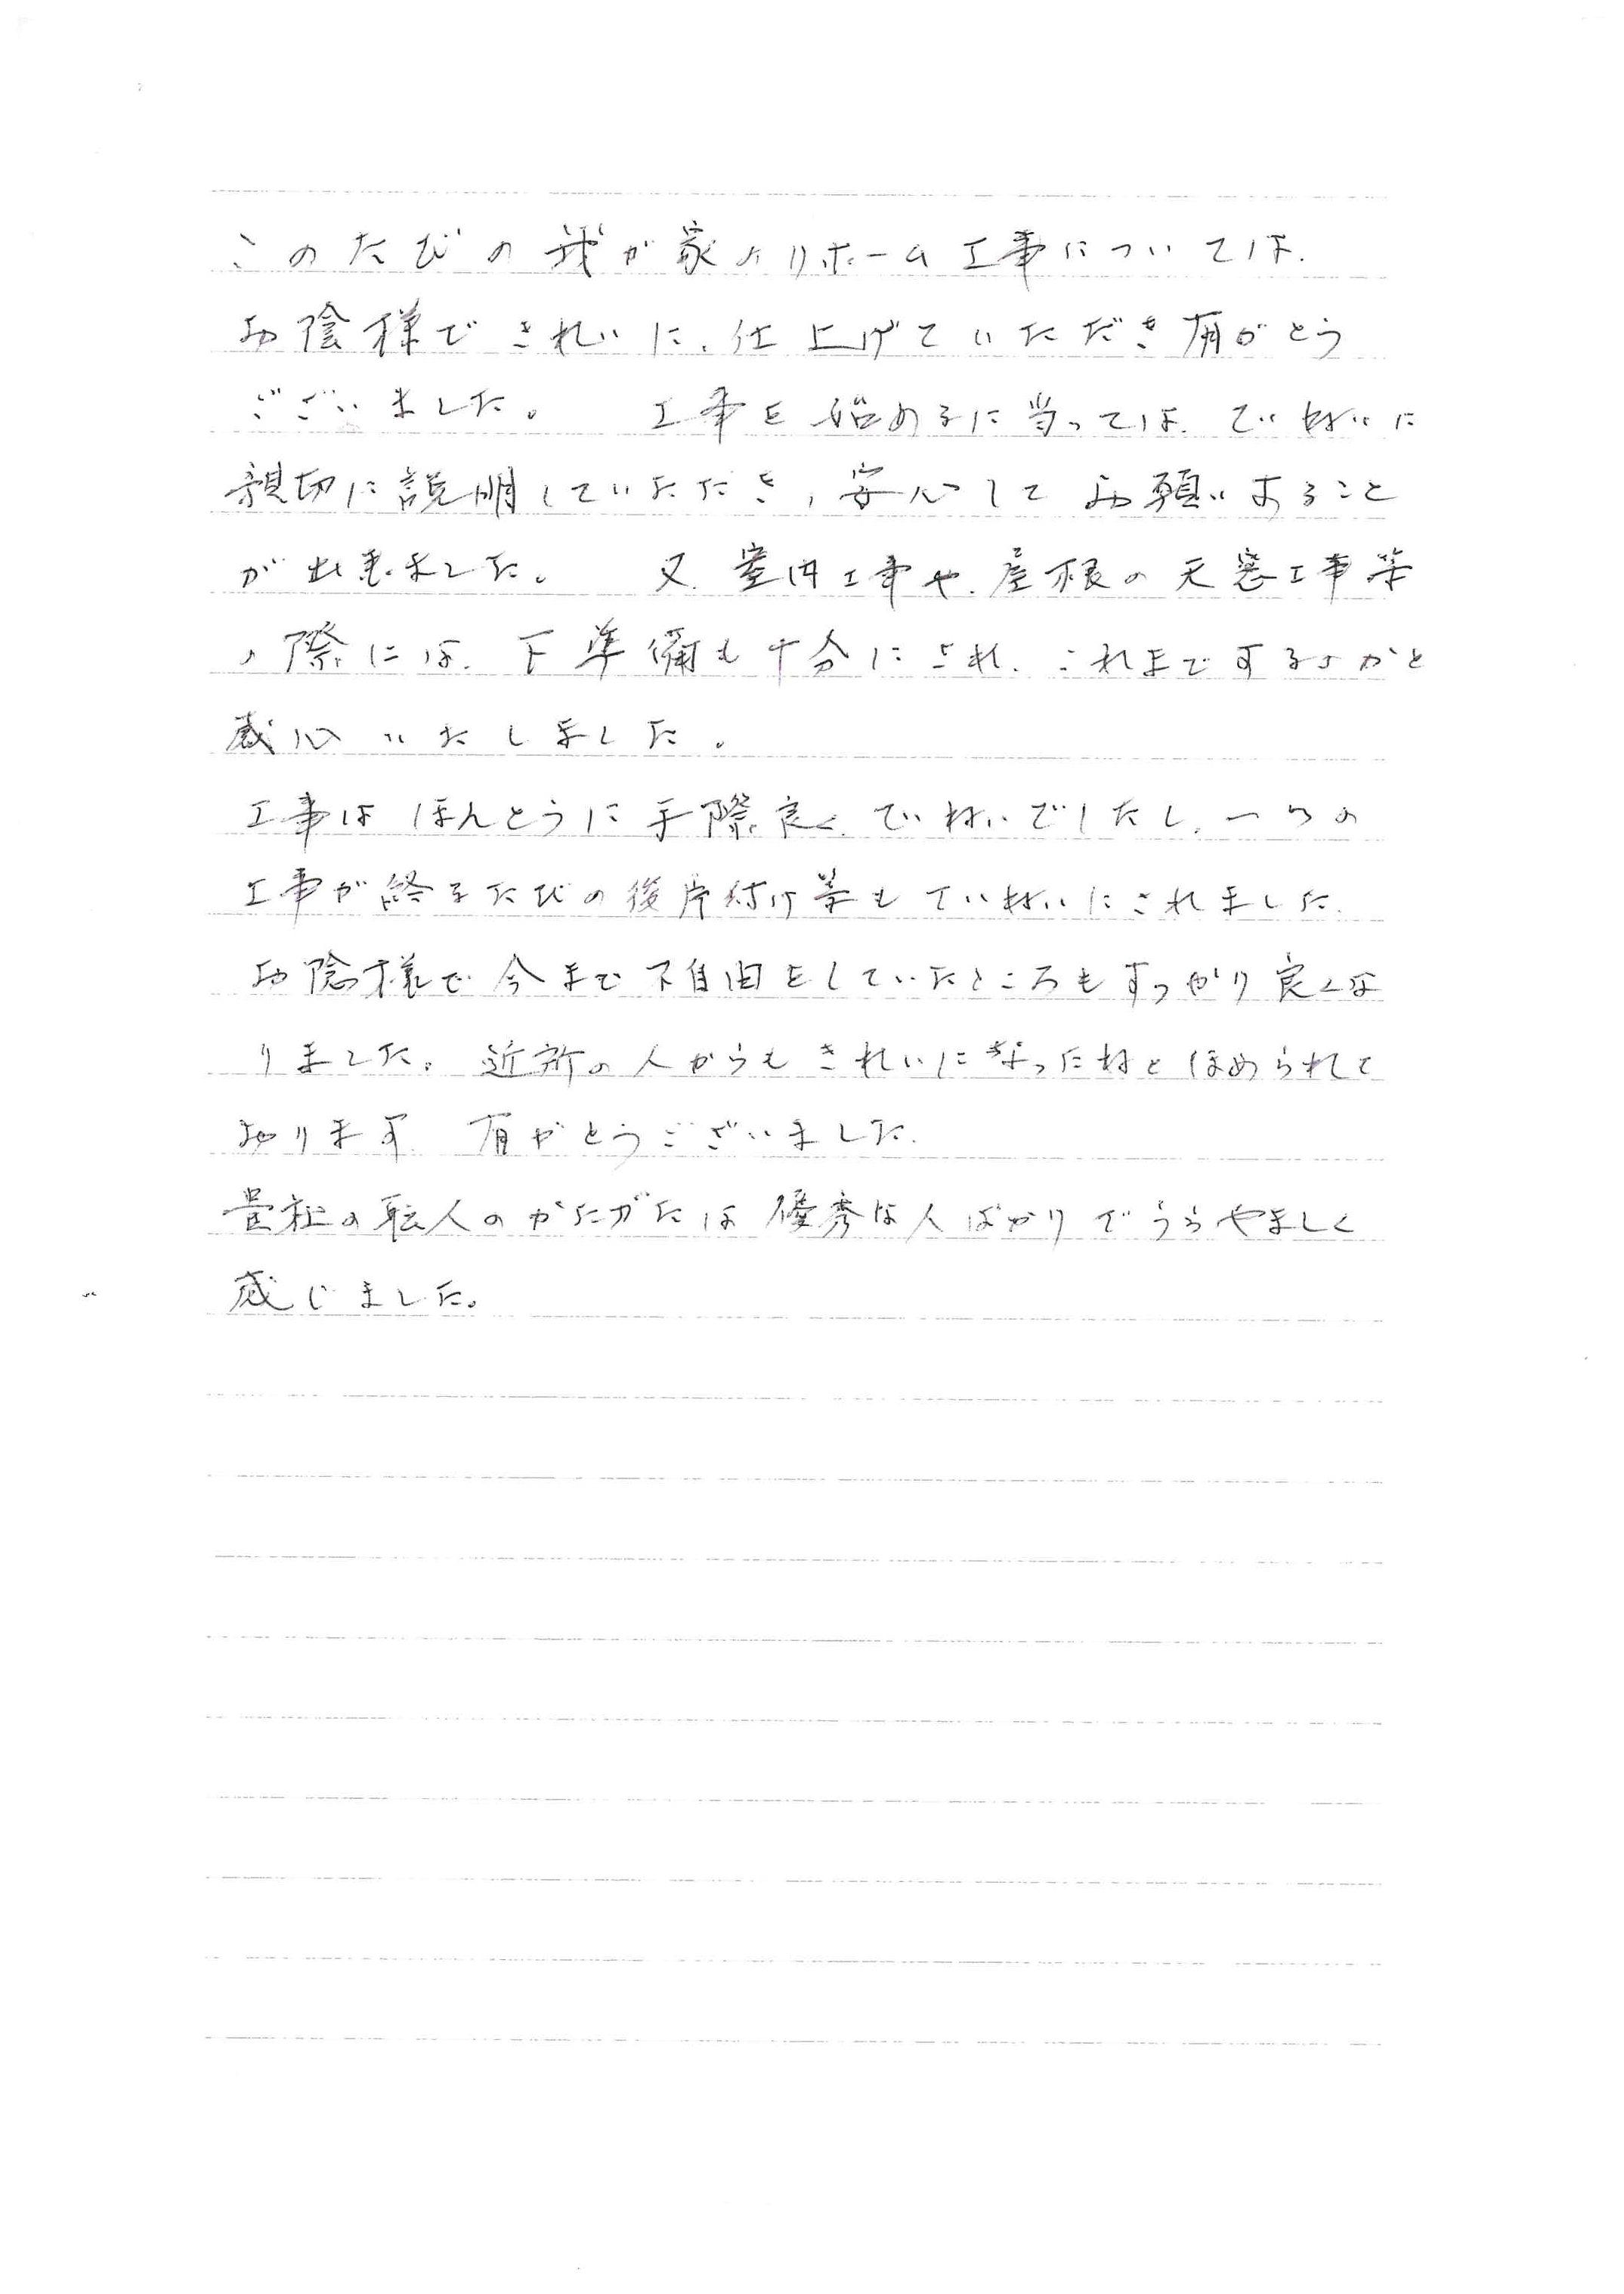 このたびの我が家のリホーム工事については、
お陰様できれいに、仕上げていただき有がとう
ございました。 工事を始めるに当っては、ていねいに
親切に説明していただき、安心してお願いすること
が出来ました。 又、室内工事や、屋根の天窓工事等
の際には、下準備も十分にされ、これまでするのかと
感心いたしました。
工事はほんとうに手際良く、ていねいでしたし、一つの
工事が終るたびの後片付け等もていねいにされました。
お陰様で今まで不自由をしていたところもすっかり良くな
りました。近所の人からもきれいになったねとほめられて
おります。有がとうございました。
貴社の職人のかたがたは優秀な人ばかりでうらやましく
感じました。